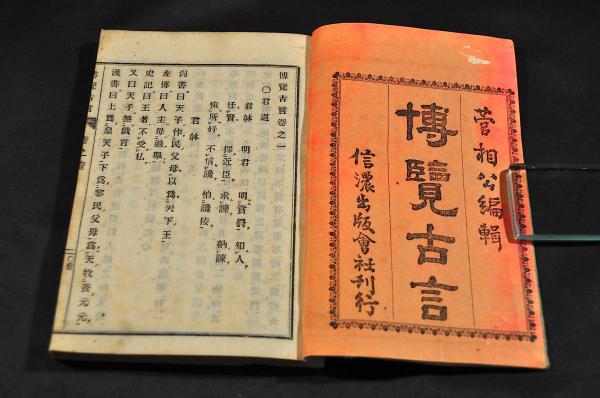 菅相公編輯
博覽古言
信濃出版會社刊行
博覽古言卷之一
〇君道
君躰 明君 明賞爵 知人
任賢 擇近臣 求諫 納諫
愼所好 不信讒 怕讒佞
君躰
尙書曰天子作民父母以爲天下王
左傳曰人主毋過擧
史記曰王者不受私
又曰天子無戲言
漢書曰上爲皇天子下爲黎民父母爲天牧養元元